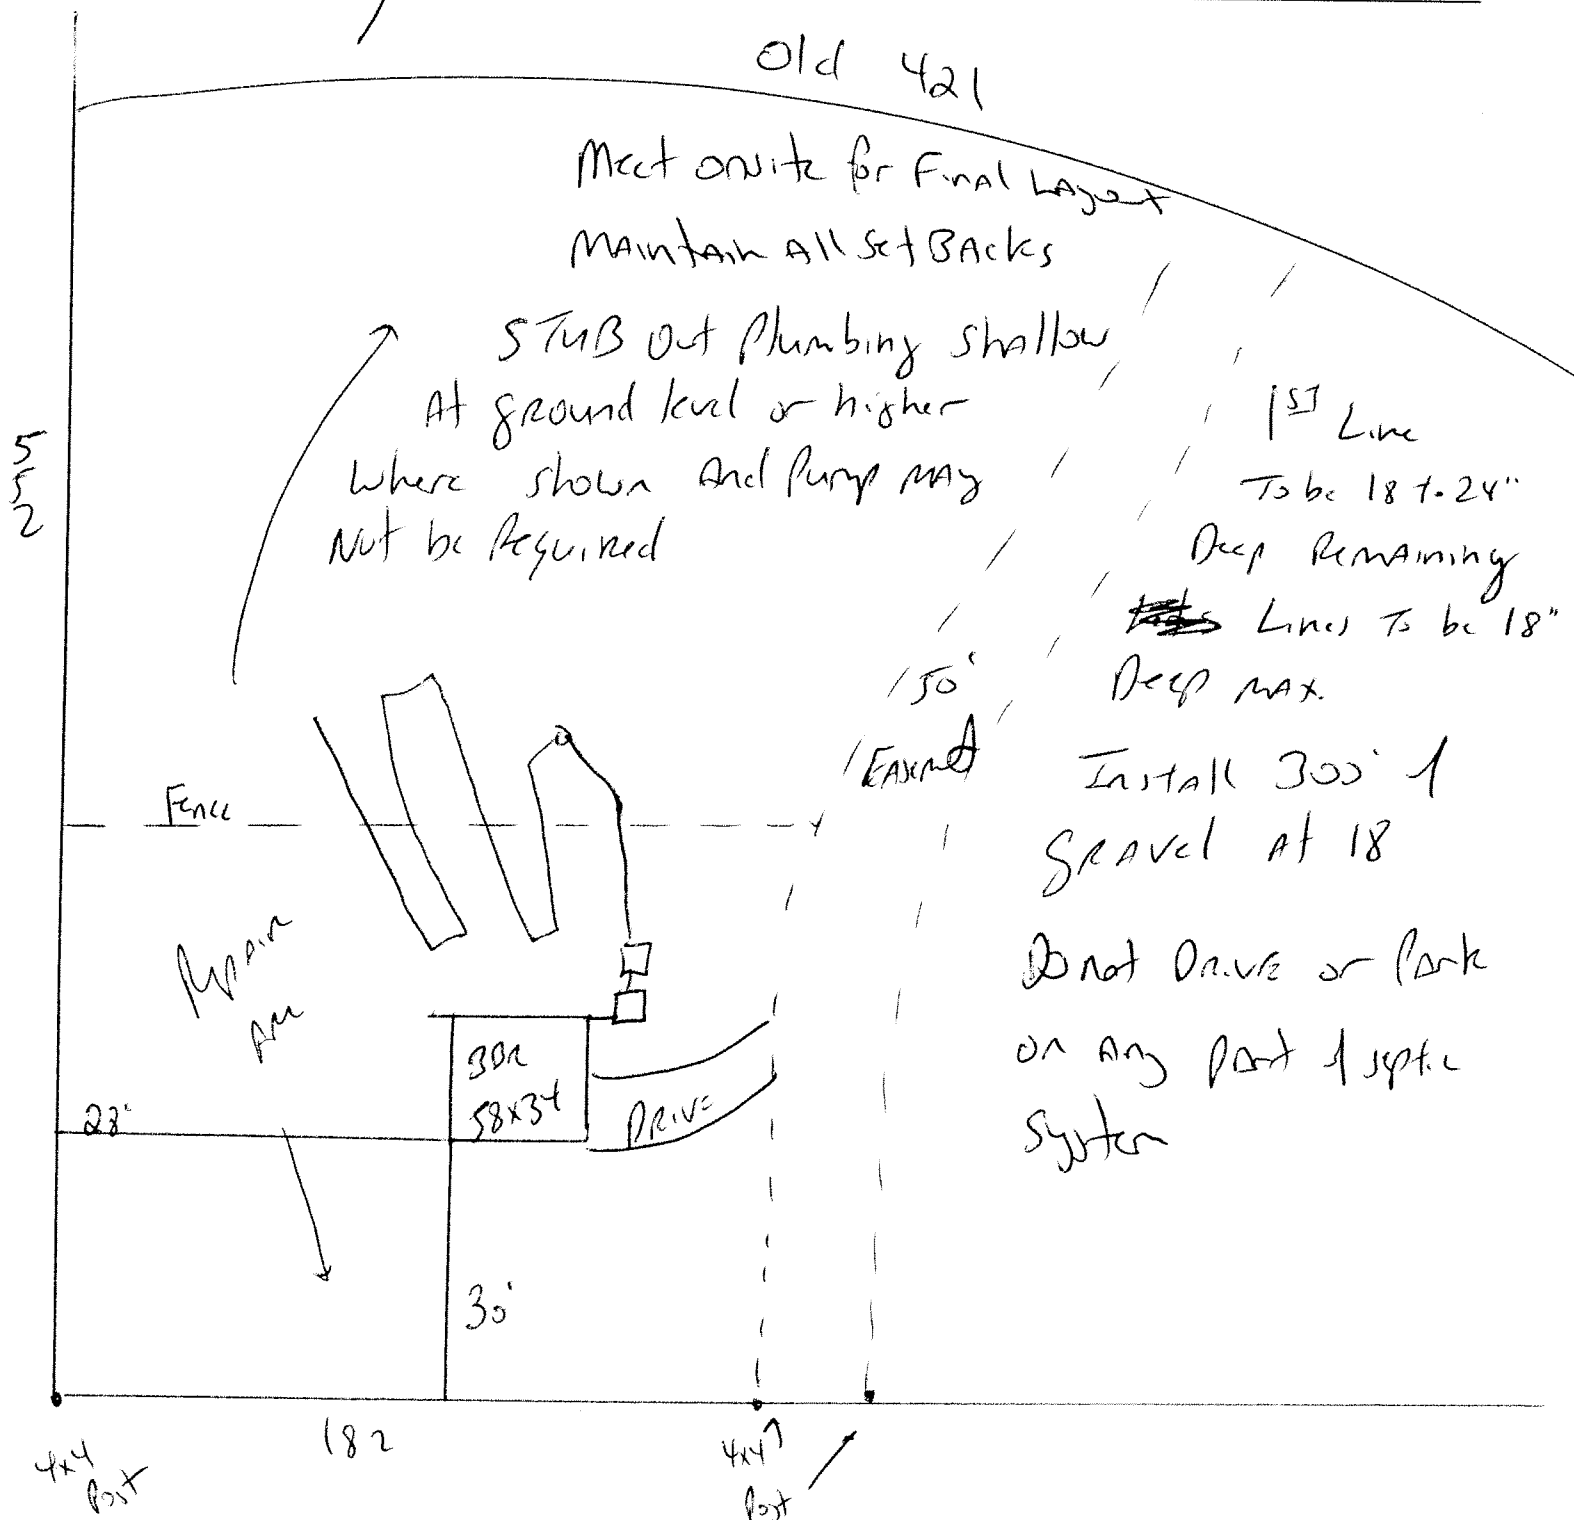 Old 421
Meet onsite for Final Layout
Maintain All SetBacks
STUB Out Plumbing shallow
At ground level or higher
where shown And Pump may
Not be Required
552
1ST Line
To be 18 to 24"
Deep Remaining
Lines To be 18"
Deep max.
50'
Easement
Install 300' of
gravel At 18
Fence
Do not Drive or Park
on Any part of septic
system
Repair
Area
3BR
58x34
DRIVE
28'
30'
182
4x4
Post
4x4
Post